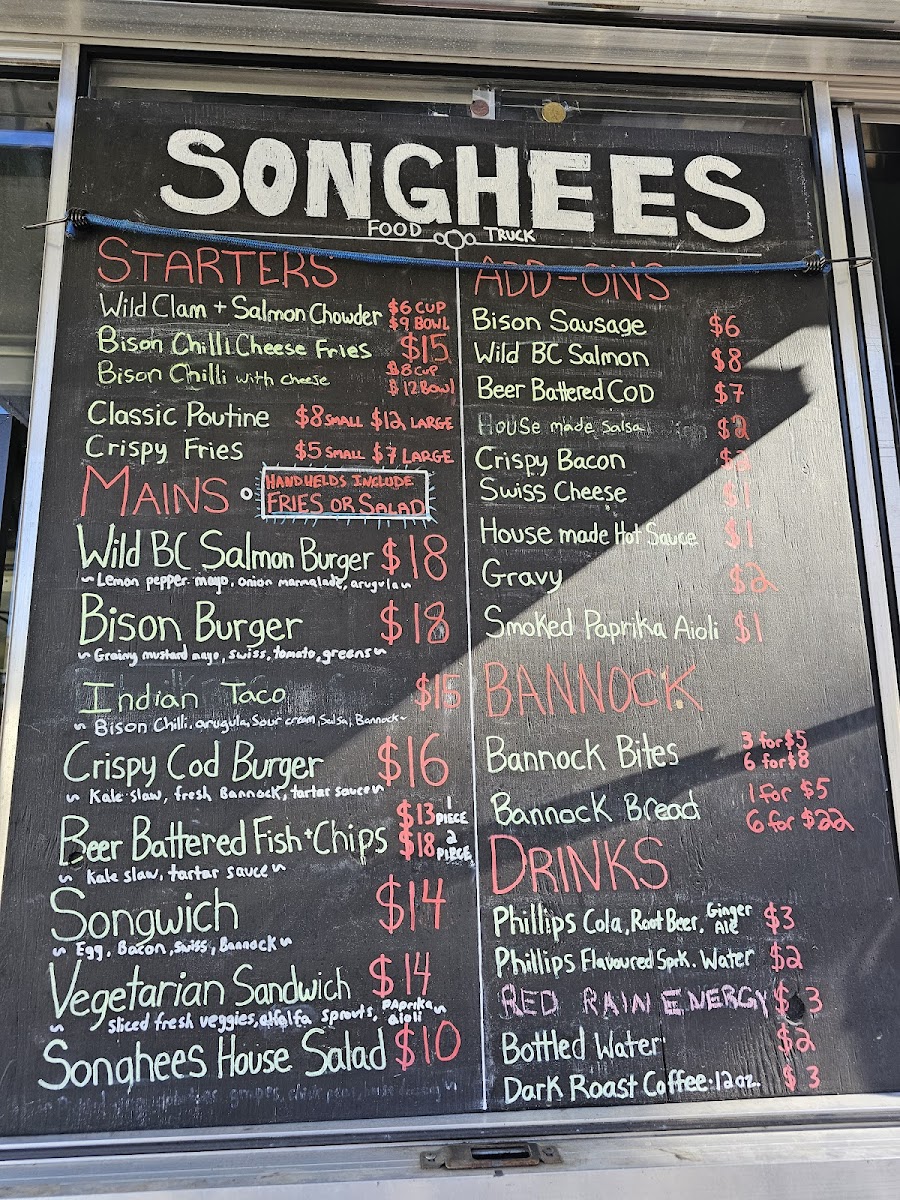 SONGHEES
FOOD TRUCK
STARTERS
Wild Clam + Salmon Chowder $6 CUP
$9 BOWL
Bison Chilli Cheese Fries $15
Bison Chilli with cheese $8 CUP
$12 Bowl
Classic Poutine $8 SMALL $12 LARGE
Crispy Fries $5 SMALL $7 LARGE
MAINS
HANDHELDS INCLUDE
FRIES OR SALAD
Wild BC Salmon Burger $18
~ Lemon pepper mayo, onion marmalade, arugula ~
Bison Burger $18
~ Grainy mustard mayo, swiss, tomato, greens ~
Indian Taco $15
~ Bison Chilli, arugula, Sour cream, Salsa, Bannock ~
Crispy Cod Burger $16
~ Kale slaw, fresh Bannock, tartar sauce ~
Beer Battered Fish + Chips $13 1 PIECE
$18 2 PIECE
~ Kale slaw, tartar sauce ~
Songwich $14
~ Egg, Bacon, Swiss, Bannock ~
Vegetarian Sandwich $14
~ sliced fresh veggies, alfalfa sprouts, PAprika aioli ~
Songhees House Salad $10
grapes,
ADD-ONS
Bison Sausage $6
Wild BC Salmon $8
Beer Battered COD $7
House made Salsa $2
Crispy Bacon
Swiss Cheese $1
House made Hot Sauce $1
Gravy $2
Smoked Paprika Aioli $1
BANNOCK
Bannock Bites 3 for $5
6 for $8
Bannock Bread 1 for $5
6 for $22
DRINKS
Phillips Cola, Root Beer, Ginger Ale $3
Phillips Flavoured Sprk. Water $2
RED RAIN ENERGY $3
Bottled Water $2
Dark Roast Coffee: 12oz. $3